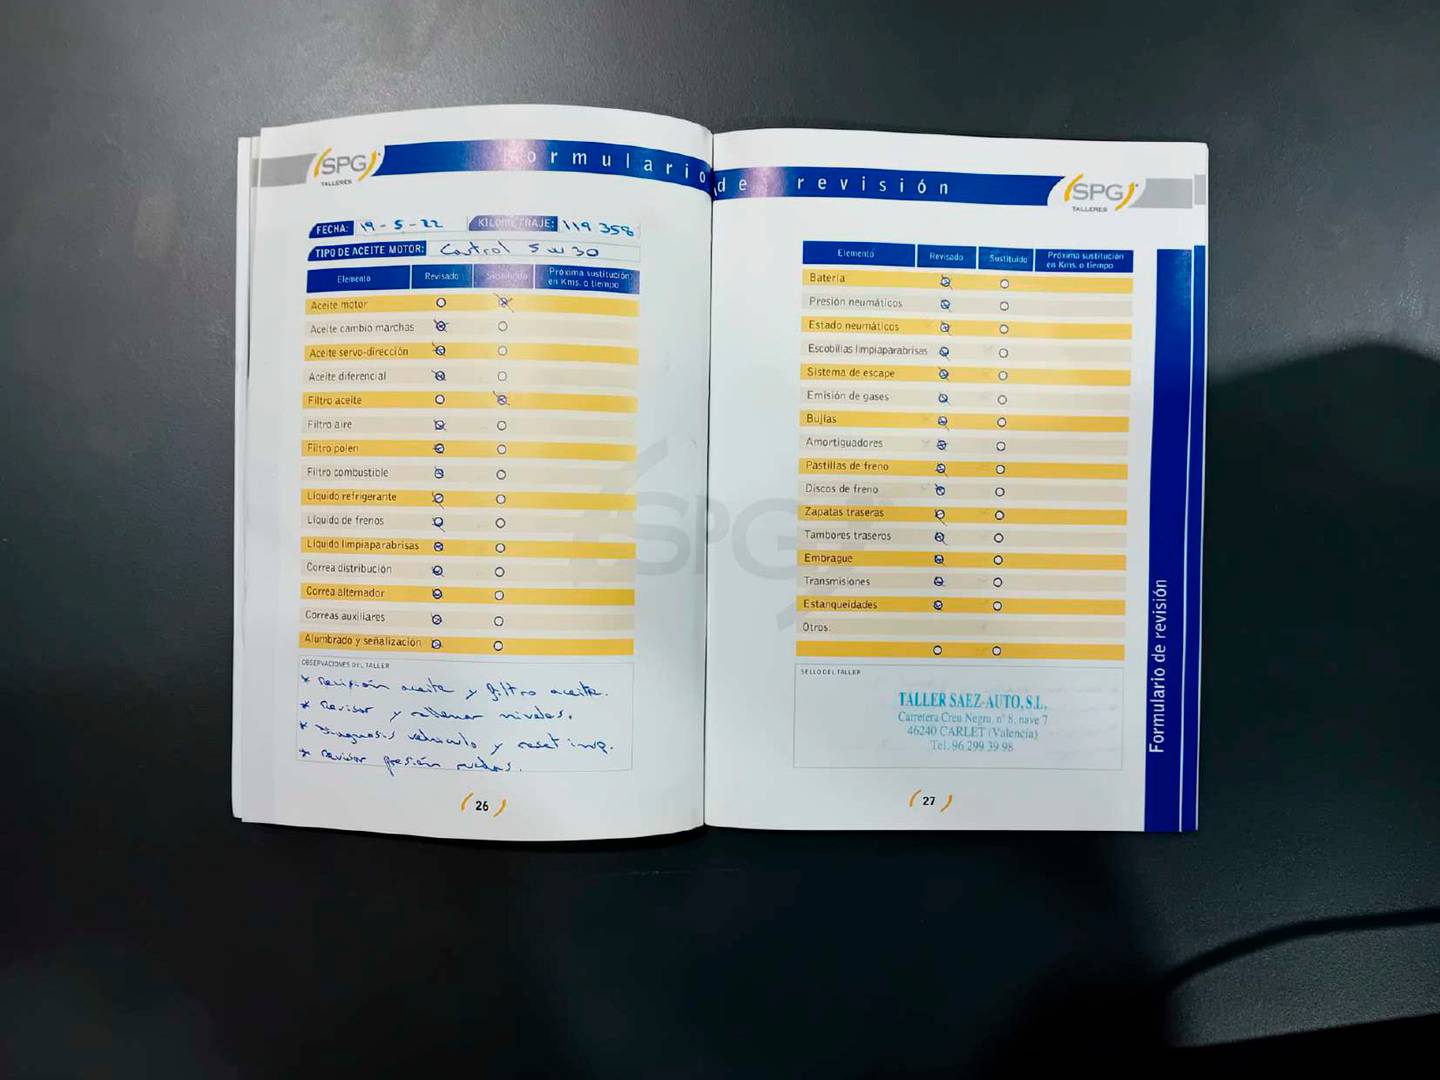 SPG
TALLERES
Formulario de revisión
SPG
TALLERES
FECHA: 19-5-22 KILOMETRAJE: 119 358
TIPO DE ACEITE MOTOR: Castrol 5w30
Elemento Revisado Sustituido Próxima sustitución en Kms. o tiempo
Aceite motor
Aceite cambio marchas
Aceite servo-dirección
Aceite diferencial
Filtro aceite
Filtro aire
Filtro polen
Filtro combustible
Líquido refrigerante
Líquido de frenos
Líquido limpiaparabrisas
Correa distribución
Correa alternador
Correas auxiliares
Alumbrado y señalización
OBSERVACIONES DEL TALLER
* revisión aceite y filtro aceite.
* revisar y rellenar niveles.
* Diagnosis vehiculo y reset insp.
* revisar presión ruedas.
26
Elemento Revisado Sustituido Próxima sustitución en Kms. o tiempo
Batería
Presión neumáticos
Estado neumáticos
Escobillas limpiaparabrisas
Sistema de escape
Emisión de gases
Bujías
Amortiguadores
Pastillas de freno
Discos de freno
Zapatas traseras
Tambores traseros
Embrague
Transmisiones
Estanqueidades
Otros:
SELLO DEL TALLER
TALLER SAEZ-AUTO, S.L.
Carretera Creu Negra, nº 8, nave 7
46240 CARLET (Valencia)
Tel. 96 299 39 98
27
Formulario de revisión
SPG